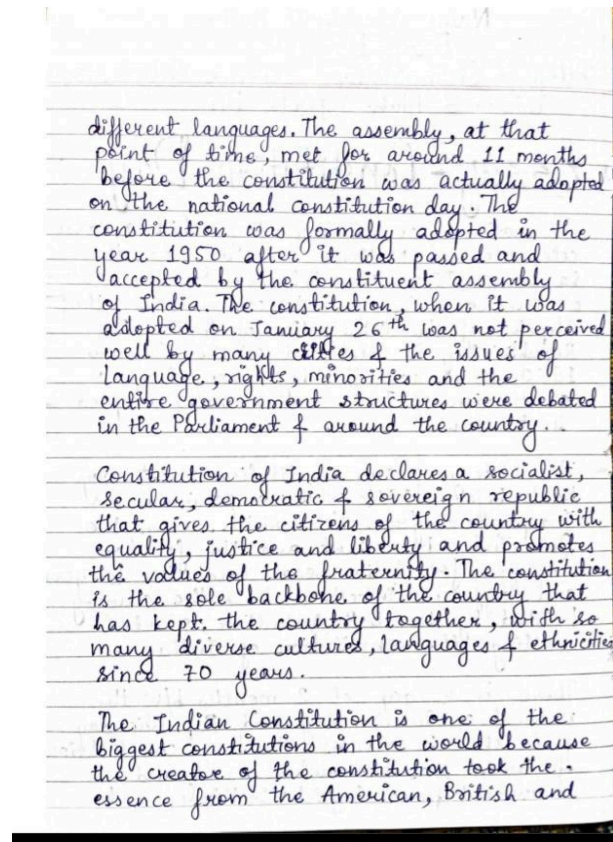 different languages. The assembly, at that
point of time, met for around 11 months
before the constitution was actually adopted
on the national constitution day. The
constitution was formally adopted in the
year 1950 after it was passed and
accepted by the constituent assembly
of India. The constitution, when it was
adopted on January 26th was not perceived
well by many cities & the issues of
language, rights, minorities and the
entire government structures were debated
in the Parliament & around the country.
Constitution of India declares a socialist,
secular, democratic & sovereign republic
that gives the citizens of the country with
equality, justice and liberty and promotes
the values of the fraternity. The constitution
is the sole backbone of the country that
has kept. the country together, with so
many diverse cultures, languages & ethnicities
since 70 years.
The Indian Constitution is one of the
biggest constitutions in the world because
the creator of the constitution took the.
essence from the American, British and